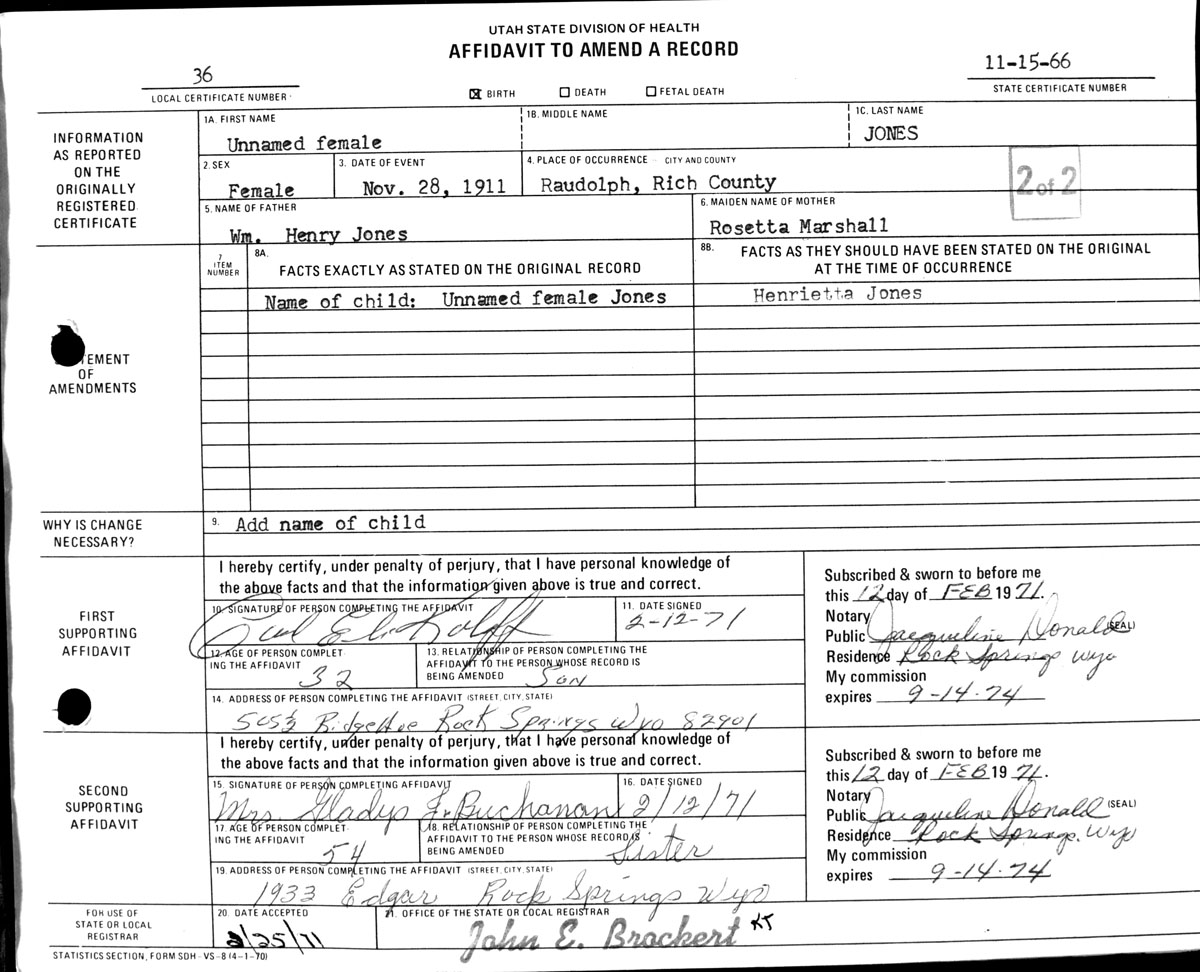 UTAH STATE DIVISION OF HEALTH
AFFIDAVIT TO AMEND A RECORD
36
LOCAL CERTIFICATE NUMBER
☒ BIRTH ☐ DEATH ☐ FETAL DEATH
11-15-66
STATE CERTIFICATE NUMBER
INFORMATION
AS REPORTED
ON THE
ORIGINALLY
REGISTERED
CERTIFICATE
1A. FIRST NAME
Unnamed female
1B. MIDDLE NAME
1C. LAST NAME
JONES
2. SEX
Female
3. DATE OF EVENT
Nov. 28, 1911
4. PLACE OF OCCURRENCE - CITY AND COUNTY
Raudolph, Rich County
2 of 2
5. NAME OF FATHER
Wm. Henry Jones
6. MAIDEN NAME OF MOTHER
Rosetta Marshall
7
ITEM
NUMBER
8A.
FACTS EXACTLY AS STATED ON THE ORIGINAL RECORD
8B.
FACTS AS THEY SHOULD HAVE BEEN STATED ON THE ORIGINAL
AT THE TIME OF OCCURRENCE
Name of child: Unnamed female Jones
Henrietta Jones
TEMENT
OF
AMENDMENTS
WHY IS CHANGE
NECESSARY?
9. Add name of child
FIRST
SUPPORTING
AFFIDAVIT
I hereby certify, under penalty of perjury, that I have personal knowledge of
the above facts and that the information given above is true and correct.
10. SIGNATURE OF PERSON COMPLETING THE AFFIDAVIT
11. DATE SIGNED
2-12-71
12. AGE OF PERSON COMPLET-
ING THE AFFIDAVIT
32
13. RELATIONSHIP OF PERSON COMPLETING THE
AFFIDAVIT TO THE PERSON WHOSE RECORD IS
BEING AMENDED Son
14. ADDRESS OF PERSON COMPLETING THE AFFIDAVIT (STREET, CITY, STATE)
505½ Ridge Ave Rock Springs Wyo 82901
Subscribed & sworn to before me
this 12 day of FEB 19 71.
Notary
Public Jacqueline Donald (SEAL)
Residence Rock Springs Wyo
My commission
expires 9-14-74
SECOND
SUPPORTING
AFFIDAVIT
I hereby certify, under penalty of perjury, that I have personal knowledge of
the above facts and that the information given above is true and correct.
15. SIGNATURE OF PERSON COMPLETING AFFIDAVIT
Mrs. Gladys J. Buchanan
16. DATE SIGNED
2/12/71
17. AGE OF PERSON COMPLET-
ING THE AFFIDAVIT
54
18. RELATIONSHIP OF PERSON COMPLETING THE
AFFIDAVIT TO THE PERSON WHOSE RECORD IS
BEING AMENDED Sister
19. ADDRESS OF PERSON COMPLETING THE AFFIDAVIT (STREET, CITY, STATE)
1933 Edgar Rock Springs Wyo
Subscribed & sworn to before me
this 12 day of FEB 19 71.
Notary
Public Jacqueline Donald (SEAL)
Residence Rock Springs, Wyo
My commission
expires 9-14-74
FOR USE OF
STATE OR LOCAL
REGISTRAR
20. DATE ACCEPTED
2/25/71
21. OFFICE OF THE STATE OR LOCAL REGISTRAR
John E. Brockert KT
STATISTICS SECTION, FORM SDH - VS - 8 (4-1-70)